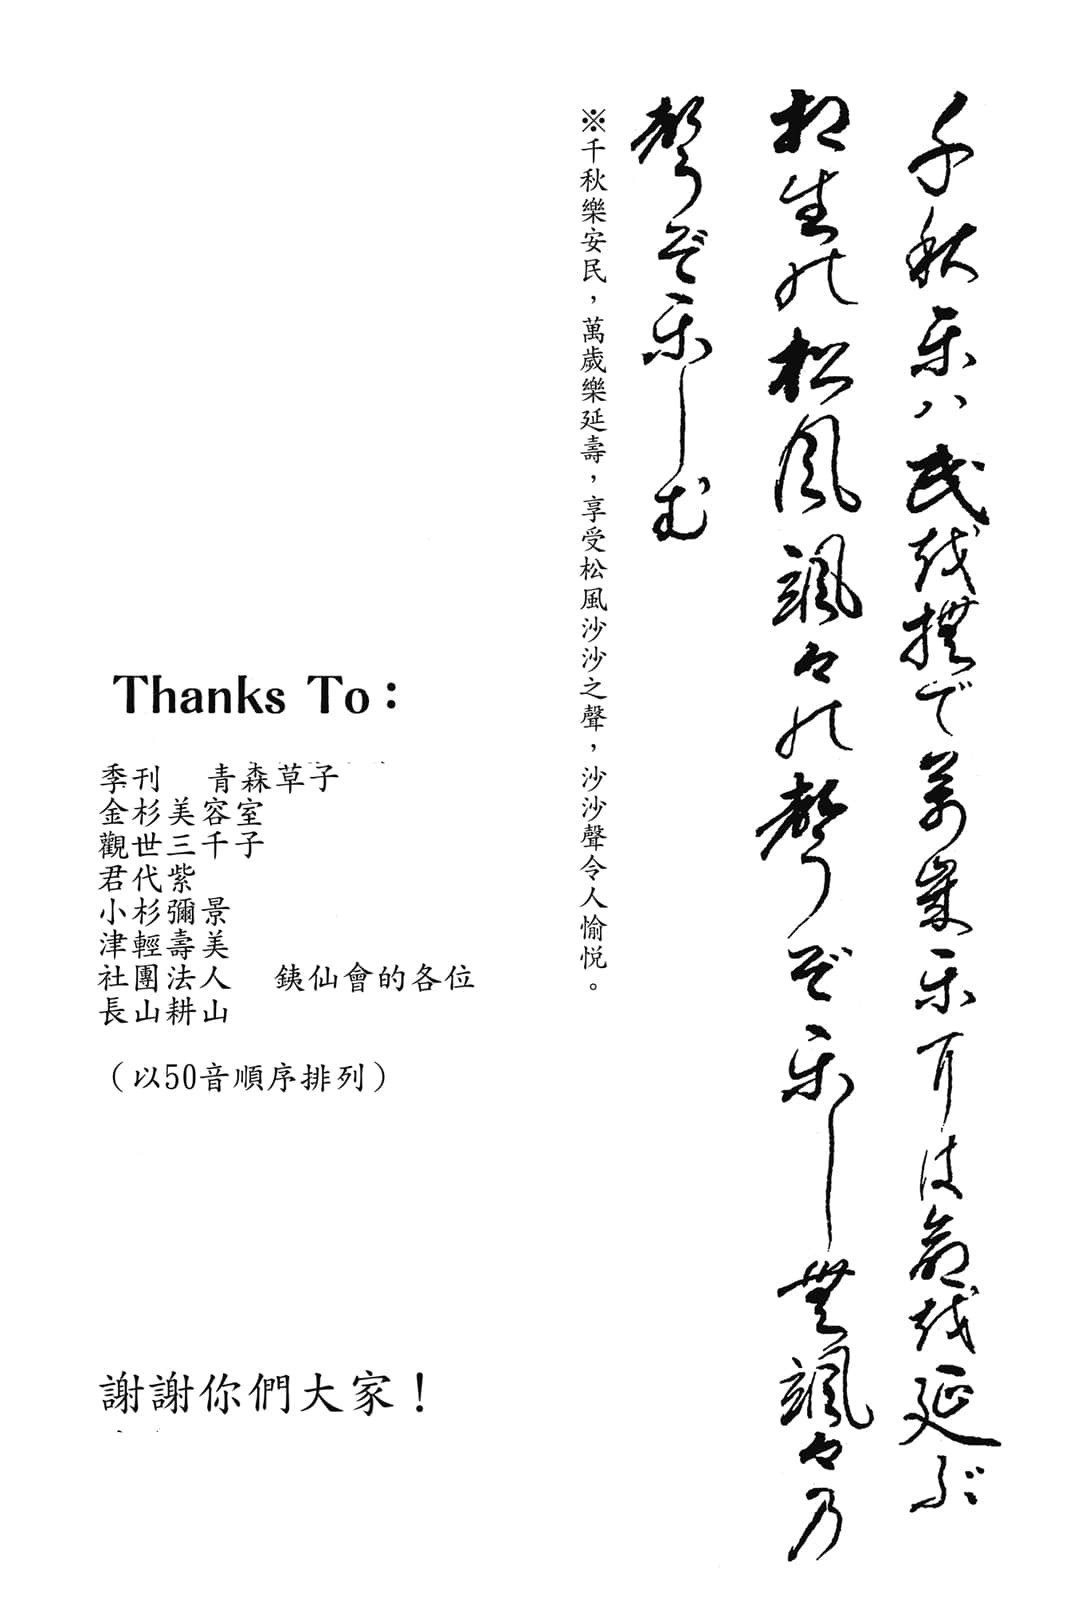 千秋楽ハ民越撫で萬歳楽耳は命越延ぶ
相生能松風颯々能聲ぞ楽し無颯々乃
聲ぞ楽しむ
※千秋樂安民，萬歲樂延壽，享受松風沙沙之聲，沙沙聲令人愉悅。
Thanks To：
季刊　青森草子
金杉美容室
觀世三千子
君代紫
小杉彌景
津輕壽美
社團法人　銕仙會的各位
長山耕山
（以50音順序排列）
謝謝你們大家！